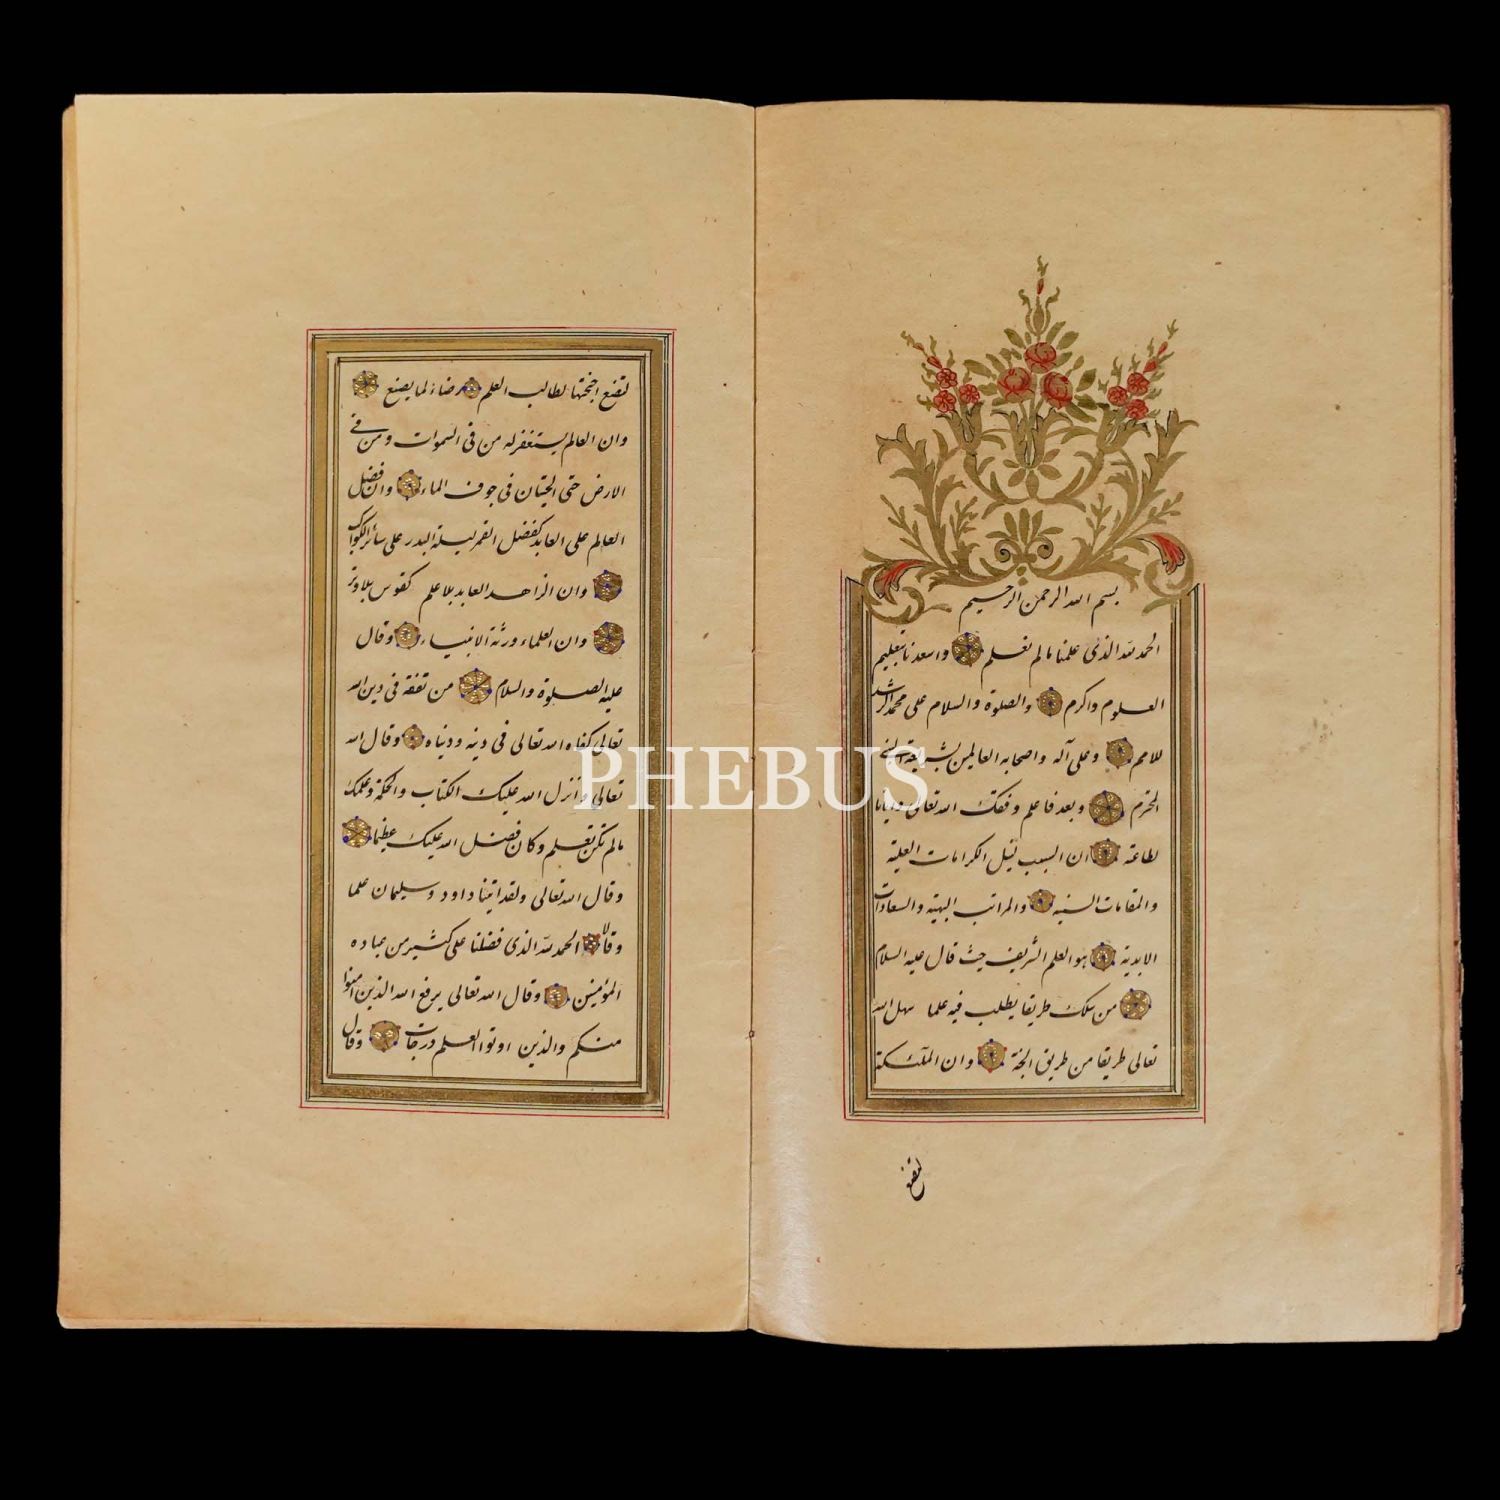 بسم الله الرحمن الرحيم
الحمد لله الذى علمنا مالم نعلم واسعدنا بتعليم
العلوم واكرم والصلوة والسلام على محمد المرشد
للامم وعلى آله واصحابه العالمين بشريعته
المحترم وبعد فاعلم وفقك الله تعالى وايانا
لطاعته ان السبب لنيل الكرامات العلية
والمقامات السنية والمراتب البهية والسعادات
الابدية هو العلم الشريف حيث قال عليه السلام
من سلك طريقا يطلب فيه علما سهل الله
تعالى طريقا من طريق الجنة وان الملئكة
لتضع
لتضع اجنحتها لطالب العلم رضاء لما يصنع
وان العالم يستغفر له من فى السموات ومن فى
الارض حتى الحيتان فى جوف الماء وان فضل
العالم على العابد كفضل القمر ليلة البدر على سائر الكواكب
وان الزاهد العابد بلا علم كقوس بلا وتر
وان العلماء ورثة الانبياء وقال
عليه الصلوة والسلام من تفقه فى دين الله
تعالى كفاه الله تعالى فى دينه ودنياه وقال الله
تعالى وانزل الله عليك الكتاب والحكمة وعلمك
مالم تكن تعلم وكان فضل الله عليك عظيما
وقال الله تعالى ولقد اتينا داود وسليمان علما
وقالا الحمد لله الذى فضلنا على كثير من عباده
المؤمنين وقال الله تعالى يرفع الله الذين امنوا
منكم والذين اوتوا العلم درجات وقال
PHEBUS